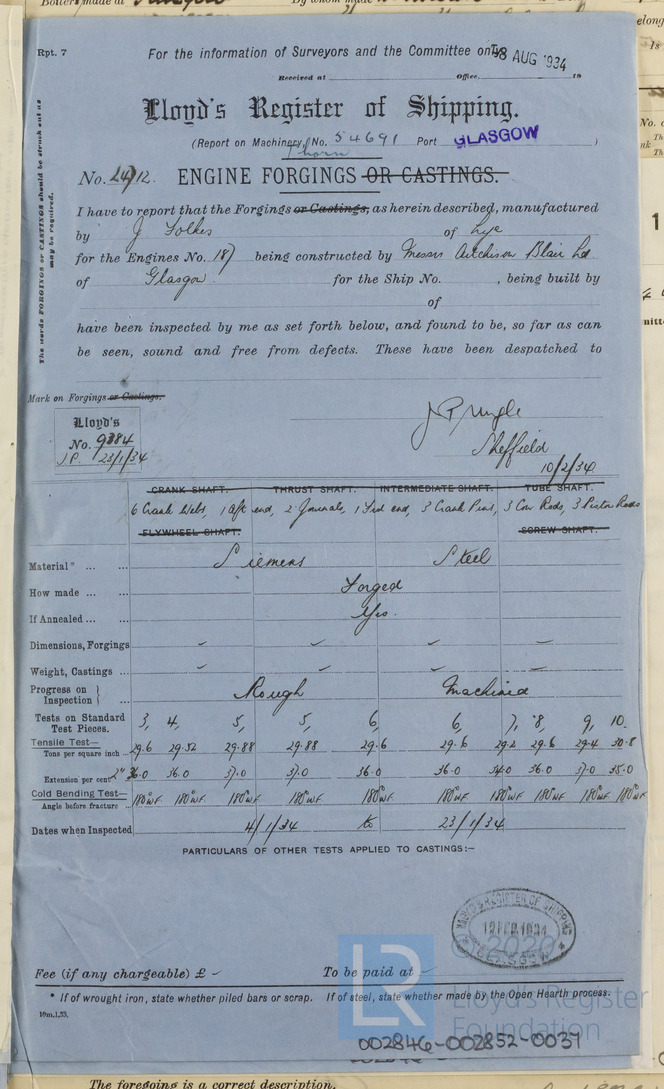 Rpt. 7
For the information of Surveyors and the Committee only
8 AUG 1934
Received at Office 19
Lloyd's Register of Shipping.
(Report on Machinery, No. 54691 Port GLASGOW )
No. 2412. ENGINE FORGINGS OR CASTINGS.
The words FORGINGS or CASTINGS should be struck out as may be required.
I have to report that the Forgings or Castings, as herein described, manufactured
by J Folkes of Lye
for the Engines No. 187 being constructed by Messrs Aitchison Blair Ld
of Glasgow for the Ship No. , being built by
of
have been inspected by me as set forth below, and found to be, so far as can
be seen, sound and free from defects. These have been despatched to
Mark on Forgings or Castings.
Lloyd's
No. 9384
J.P. 23/1/34
J Pringle
Sheffield
10/2/34
CRANK SHAFT. THRUST SHAFT. INTERMEDIATE SHAFT. TUBE SHAFT.
6 Crank Webs, 1 Aft end, 2 Journals, 1 Fwd end, 3 Crank Pins, 3 Con Rods, 3 Piston Rods
FLYWHEEL SHAFT. SCREW SHAFT.
Material* ... ... Siemens Steel
How made ... ... Forged
If Annealed ... ... Yes.
Dimensions, Forgings
Weight, Castings ...
Progress on Inspection } ... Rough Machined
Tests on Standard Test Pieces. 3, 4, 5, 5, 6, 6, 7, 8, 9, 10.
Tensile Test— Tons per square inch ... 29.6 29.52 29.88 29.88 29.6 29.6 29.2 29.6 29.4 30.8
Extension per cent 2" 36.0 36.0 37.0 37.0 36.0 36.0 34.0 36.0 37.0 35.0
Cold Bending Test— Angle before fracture ... 180° W.F. 180° W.F. 180° W.F. 180° W.F. 180° W.F. 180° W.F. 180° W.F. 180° W.F. 180° W.F. 180° W.F.
Dates when Inspected 4/1/34 to 23/1/34
PARTICULARS OF OTHER TESTS APPLIED TO CASTINGS:—
LLOYD'S REGISTER OF SHIPPING
12 FEB 1934
GLASGOW
© 2020
Fee (if any chargeable) £ To be paid at
* If of wrought iron, state whether piled bars or scrap. If of steel, state whether made by the Open Hearth process.
10m.1,33.
LR
Lloyd's Register
Foundation
002846-002852-0039
The foregoing is a correct description.